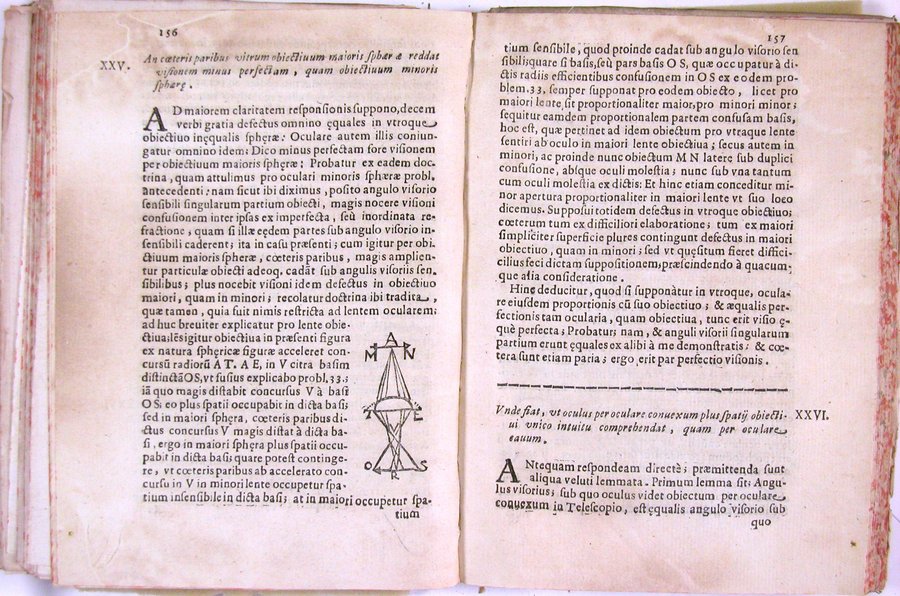 156
XXV. An cœteris paribus vitrum obiectiuum maioris sphæræ reddat
visionem minus perfectam, quam obiectiuum minoris
sphęrę.
AD maiorem claritatem responsionis suppono, decem
verbi gratia defectus omnino ęquales in vtroque
obiectiuo inęqualis spheræ: Oculare autem illis coniun-
gatur omnino idem: Dico minus perfectam fore visionem
per obiectiuum maioris sphęræ; Probatur ex eadem doc-
trina, quam attulimus pro oculari minoris sphæræ probl.
antecedenti: nam sicut ibi diximus, posito angulo visorio
sensibili singularum partium obiecti, magis nocere visioni
confusionem inter ipsas ex imperfecta, seù inordinata re-
fractione, quam si illæ ęędem partes sub angulo visorio in-
sensibili caderent; ita in casu præsenti; cum igitur per obi-
ctiuum maioris sphæræ, cœteris paribus, magis amplien-
tur particulæ obiecti adeoq. cadāt sub angulis visoriis sen-
sibilibus; plus nocebit visioni idem defectus in obiectiuo
maiori, quam in minori; recolatur doctrina ibi tradita,
quæ tamen, quia fuit nimis restricta ad lentem ocularem;
ad huc breuiter explicatur pro lente obie-
ctiua; lēs igitur obiectiua in præsenti figura
ex natura sphericæ figuræ acceleret con-
cursū radiorū A T. A E, in V citra basim
distinctā OS, vt fusius explicabo probl. 33.;
iā quo magis distabit concursus V à basi
OS; eo plus spatii occupabit in dicta basi;
sed in maiori sphęra, cœteris paribus di-
ctus concursus V magis distat à dicta ba-
si, ergo in maiori sphęra plus spatii occu-
pabit in dicta basi; quare potest continge-
re, vt cœteris paribus ab accelerato con-
cursu in V in minori lente occupetur spa-
tium insensibile in dicta basi; at in maiori occupetur spa-
tium
A
M N
O R S
157
tium sensibile, quod proinde cadat sub angulo visorio sen
sibili; quare si basis, seù pars basis O S, quæ occupatur à di-
ctis radiis efficientibus confusionem in O S ex eodem pro-
blem. 33. semper supponat pro eodem obiecto, licet pro
maiori lente, sit proportionaliter maior, pro minori minor;
sequitur eamdem proportionalem partem confusam basis,
hoc est, quæ pertinet ad idem obiectum pro vtraque lente
sentiri ab oculo in maiori lente obiectiua; secus autem in
minori, ac proinde nunc obiectum M N latere sub duplici
confusione, absque oculi molestia; nunc sub vna tantum
cum oculi molestia ex dictis: Et hinc etiam conceditur mi-
nor apertura proportionaliter in maiori lente vt suo loco
dicemus. Supposui totidem defectus in vtroque obiectiuo;
cœterum tum ex difficiliori elaboratione; tum ex maiori
simpliciter superficie plures contingunt defectus in maiori
obiectiuo, quam in minori; sed vt quęsitum fieret diffici-
cilius feci dictam suppositionem, præscindendo à quacum-
que alia consideratione.
Hinc deducitur, quod si supponātur in vtroque, ocula-
re eiusdem proportionis cū suo obiectiuo; & æqualis per-
fectionis tam ocularia, quam obiectiua, tunc erit visio ę-
què perfecta; Probatur; nam, & anguli visorii singularum
partium erunt ęquales ex alibi à me demonstratis; & cœ-
tera sunt etiam paria; ergo erit par perfectio visionis.
Vnde fiat, vt oculus per oculare conuexum plus spatij obiecti- XXVI.
ui vnico intuitu comprehendat, quam per oculare
cauum.
ANtequam respondeam directè; præmittenda sunt
aliqua veluti lemmata. Primum lemma sit: Angu-
lus visorius; sub quo oculus videt obiectum per oculare
conuexum in Telescopio, est ęqualis angulo visorio sub
quo